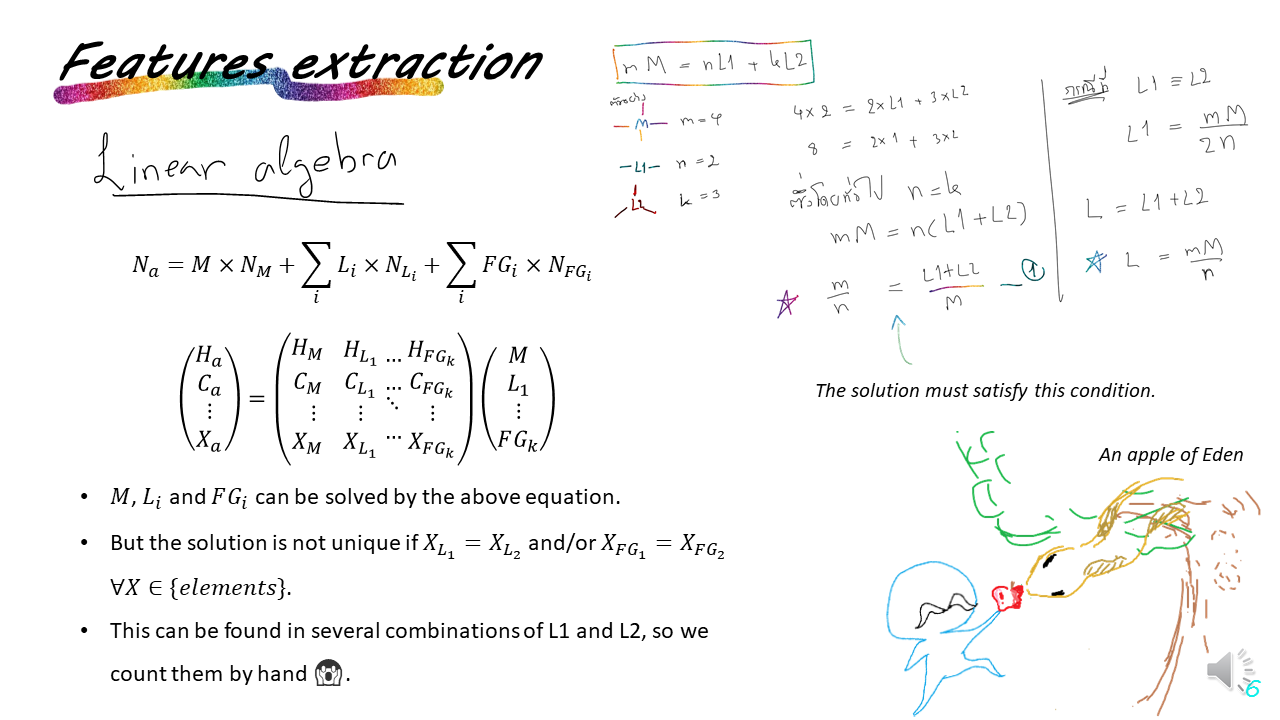 Features extraction
Linear algebra
N_a = M × N_M + ∑_i L_i × N_{L_i} + ∑_i FG_i × N_{FG_i}
(H_a C_a ⋮ X_a) = (H_M H_{L_1} … H_{FG_k} C_M C_{L_1} … C_{FG_k} ⋮ ⋮ ⋱ ⋮ X_M X_{L_1} ⋯ X_{FG_k}) (M L_1 ⋮ FG_k)
• M, L_i and FG_i can be solved by the above equation.
• But the solution is not unique if X_{L_1} = X_{L_2} and/or X_{FG_1} = X_{FG_2}
∀X ∈ {elements}.
• This can be found in several combinations of L1 and L2, so we
count them by hand 😱.
M = nL1 + kL2
ตัวอย่าง
M m=4
L1 n=2
L2 k=3
4×2 = 2×L1 + 3×L2
8 = 2×1 + 3×2
ซึ่งโดยทั่วไป n=k
mM = n(L1+L2)
m/n = L1+L2/M — ①
The solution must satisfy this condition.
กรณีที่ L1 ≡ L2
L1 = mM/2n
L = L1+L2
L = mM/n
An apple of Eden
6